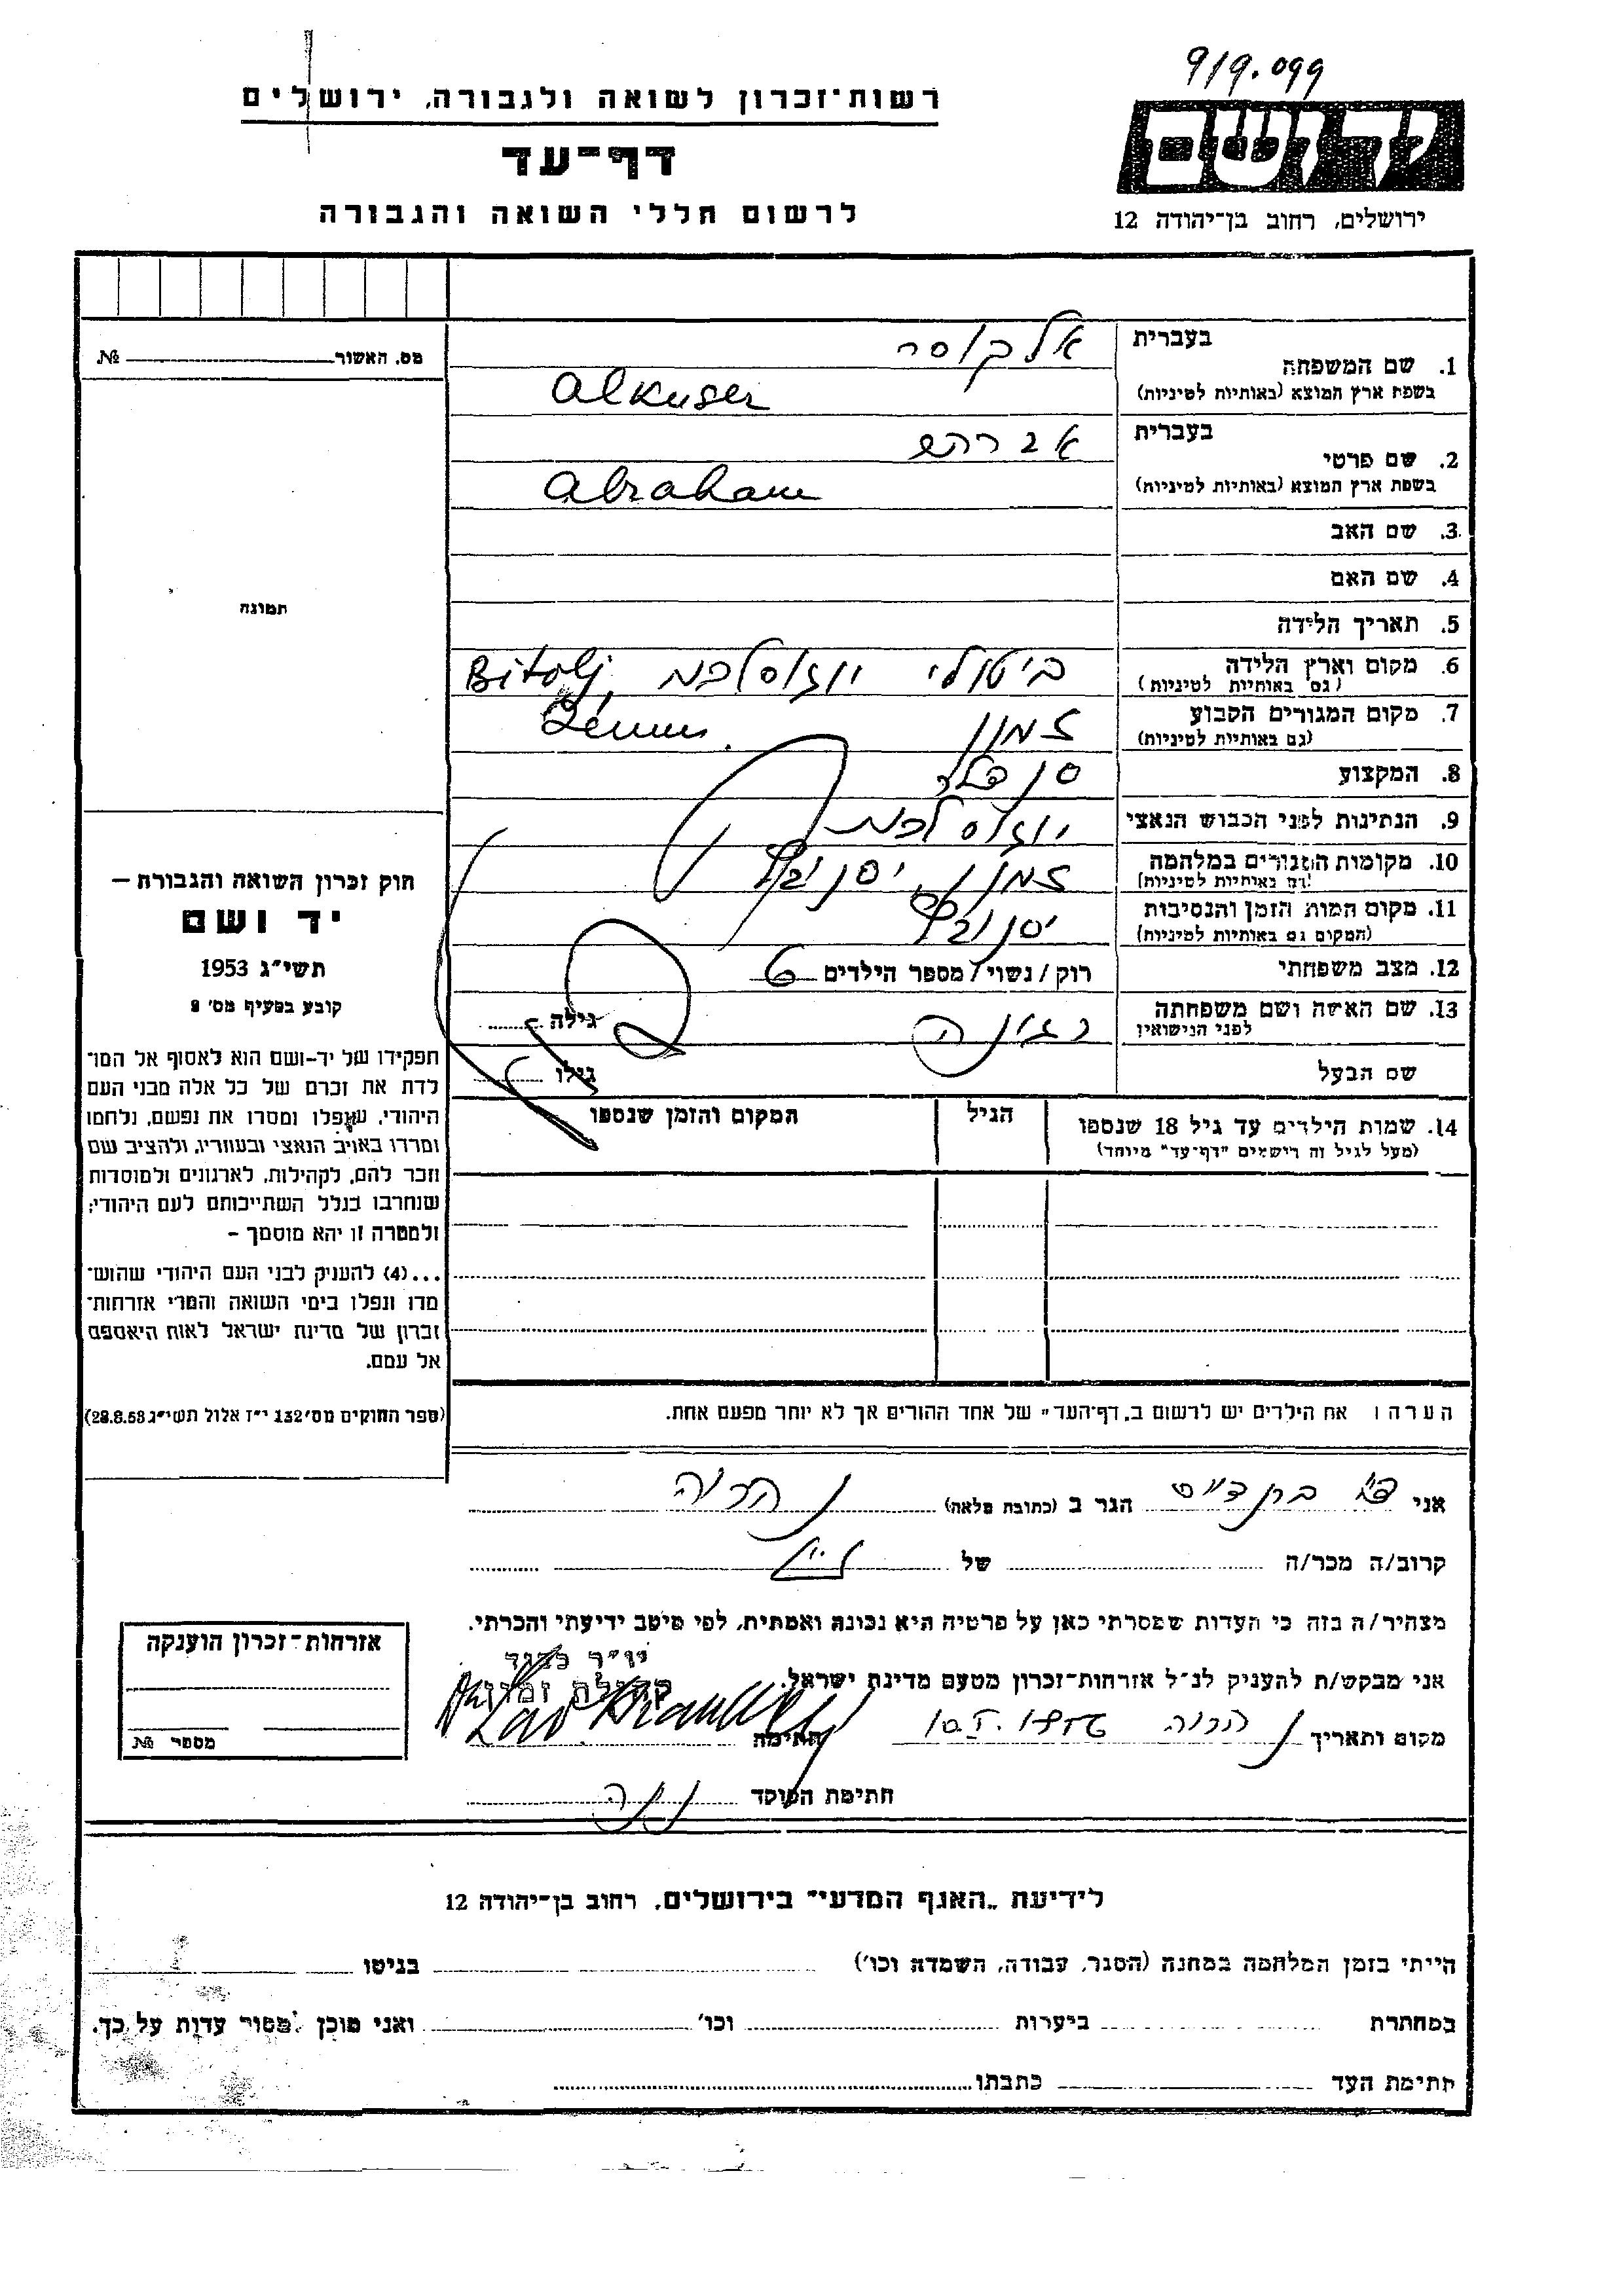 919.099
רשות־זכרון לשואה ולגבורה, ירושלים
דף־עד
לרשום חללי השואה והגבורה
יד ושם
ירושלים, רחוב בן־יהודה 12
מס. האשור № 
1. שם המשפחה בעברית אלקוסר
בשפת ארץ המוצא (באותיות לטיניות) Alkuser
2. שם פרטי בעברית אברהם
בשפת ארץ המוצא (באותיות לטיניות) Abraham
3. שם האב
4. שם האם
5. תאריך הלידה
6. מקום וארץ הלידה ביטולי יוגוסלביה Bitolj,
(גם באותיות לטיניות)
7. מקום המגורים הקבוע זמון
(גם באותיות לטיניות)
8. המקצוע סנדלר
9. הנתינות לפני הכבוש הנאצי
10. מקומות המגורים במלחמה זמון,
(גם באותיות לטיניות)
11. מקום המות, הזמן והנסיבות
(המקום גם באותיות לטיניות)
12. מצב משפחתי רוק / נשוי / מספר הילדים 6
13. שם האשה ושם משפחתה
לפני הנישואין
גילה
שם הבעל
גילו
14. שמות הילדים עד גיל 18 שנספו הגיל המקום והזמן שנספו
(מעל לגיל זה רישמים "דף־עד" מיוחד)
תמונה
חוק זכרון השואה והגבורה —
יד ושם
תשי"ג 1953
קובע בסעיף מס' 2
תפקידו של יד-ושם הוא לאסוף אל המו־
לדת את זכרם של כל אלה מבני העם
היהודי, שנפלו ומסרו את נפשם, נלחמו
ומרדו באויב הנאצי ובעוזריו, ולהציב שם
וזכר להם, לקהילות, לארגונים ולמוסדות
שנחרבו בגלל השתייכותם לעם היהודי;
ולמטרה זו יהא מוסמך —
...(4) להעניק לבני העם היהודי שהוש־
מדו ונפלו בימי השואה והמרי אזרחות־
זכרון של מדינת ישראל לאות היאספם
אל עמם.
(ספר החוקים מס' 132 י"ז אלול תשי"ג 28.8.53)
הערה: את הילדים יש לרשום ב"דף־העד" של אחד ההורים אך לא יותר מפעם אחת.
אני הגר ב (כתובת מלאה) נהריה
קרוב/ה מכר/ה של
מצהיר/ה בזה כי העדות שמסרתי כאן על פרטיה היא נכונה ואמתית, לפי מיטב ידיעתי והכרתי.
אני מבקש/ת להעניק לנ"ל אזרחות־זכרון מטעם מדינת ישראל.
קהילת זמון
מקום ותאריך נהריה חתימה
חתימת הפוקד
אזרחות־זכרון הוענקה
מספר №
לידיעת "האגף המדעי" בירושלים, רחוב בן־יהודה 12
הייתי בזמן המלחמה במחנה (הסגר, עבודה, השמדה וכו') בגיטו
במחתרת ביערות וכו' ואני מוכן למסור עדות על כך.
חתימת העד כתבתו